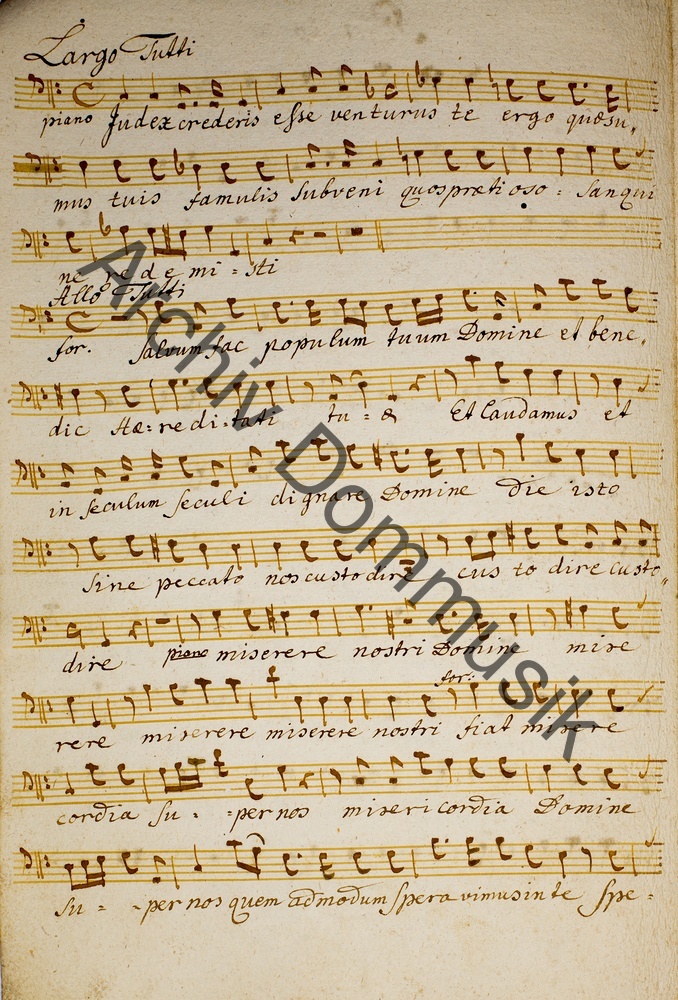 Largo Tutti
piano Judex crederis esse venturus te ergo quæsu,
mus tuis famulis subveni quos pretioso = sanqui
ne redemi = sti
Allo Tutti
for. Salvum fac populum tuum Domine et bene,
dic Hæ = redi = tati tu = æ Et laudamus et
in seculum seculi dignare Domine die isto
sine peccato nos custodire cus to dire custo,,
dire piano miserere nostri Domine mise
for:
rere miserere miserere nostri fiat misere
cordia su - - per nos misericordia Domine
su = - per nos quem admodum speravimus in te spe =
Archiv Dommusik